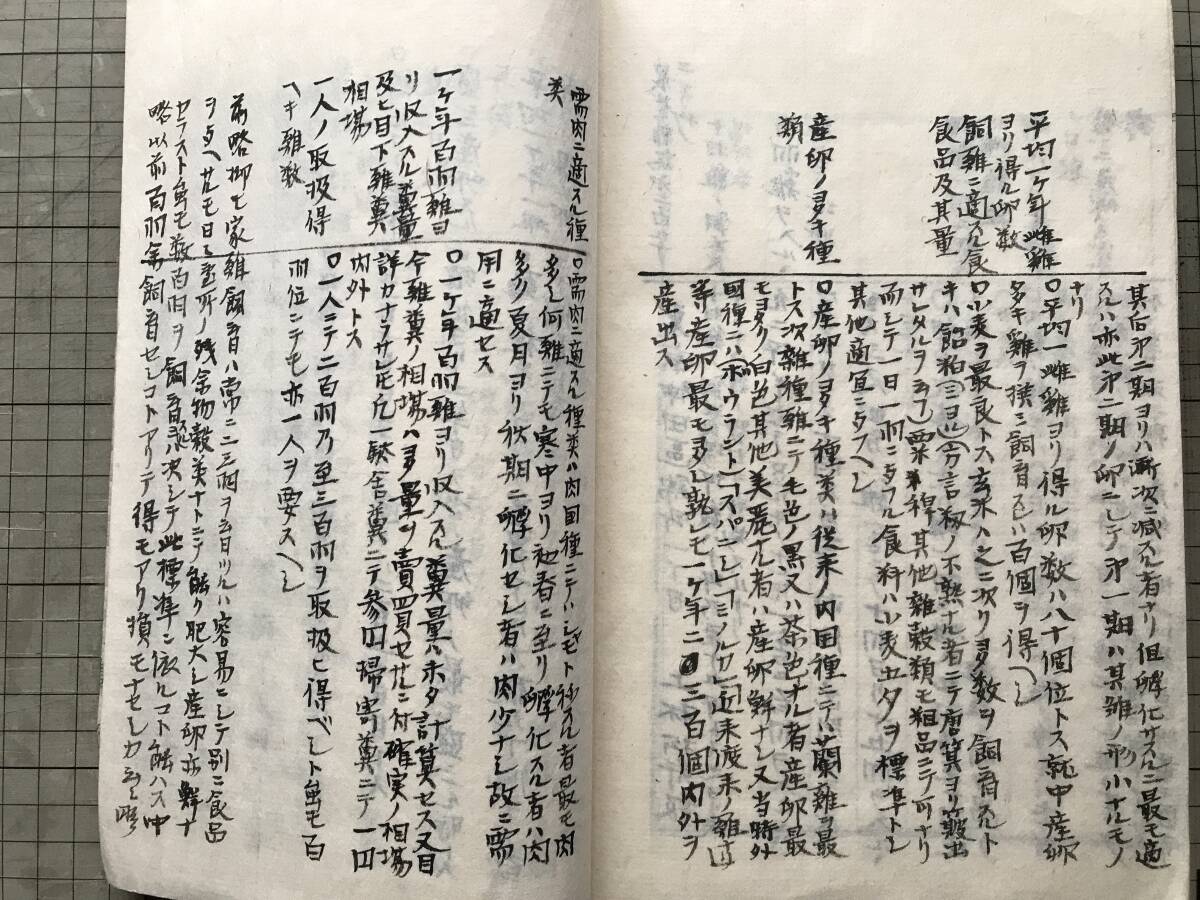 其后第二期ヨリハ漸次ニ減スル者ナリ但孵化サスルニ最モ適
スルハ亦此第二期ノ卵ニシテ第一期ハ其雛ノ形小ナルモノ
ナリ
平均一ケ年雌雞
ヨリ得ル卵数
〇平均一雌雞ヨリ得ル卵数ハ八十個位トス就中産卵
多キ雞ヲ撰ミ飼育スレハ百個ヲ得ヘシ
飼雞ニ適スル食
食品及其量
〇小麦ヲ最良トス玄米ハ之ニ次ク多数ヲ飼育スルト
キハ餡粕(ミヨ)(方言籾ノ不熟ナル者ニテ唐箕ヨリ簸出
サレタルヲ云フ)粟稗其他雑穀類モ粗品ニテ可ナリ
而シテ一日一羽ニ与フル食料ハ小麦五夕ヲ標準トシ
其他適宜ニ与フヘシ
産卵ノ多キ種
類
〇産卵ノ多キ種類ハ従来ノ内国種ニテハ蘭雞ヲ最
トス次雑種雞ニテ毛色ノ黒又ハ茶色ナル者産卵最
モ多ク白色其他美麗ナル者ハ産卵鮮ナシ又当時外
国種ニハ(ホウラント)「スパニシ」「ミノルカ」近来渡来ノ雞
等産卵最モ多シ孰レモ一ケ年二三百個内外ヲ
産出ス
需肉ニ適スル種
类
〇需肉ニ適スル種類ハ内国種ニテハシヤモト称スル者最モ肉
多シ何雞ニテモ寒中ヨリ初春ニ至リ孵化スル者ハ肉
多ク夏月ヨリ秋期ニ孵化セシ者ハ肉少ナシ故ニ需
用ニ適セス
一ケ年百羽雞ヨ
リ収入スル糞量
及ヒ目下雞糞
相場
〇一ケ年百羽雞ヨリ収入スル糞量ハ未タ計算セス又目
今雞糞ノ相場ハ多量ヲ賣買セサルニ付確実ノ相場
詳カナラサレ圧凡一駄舎糞ニテ参円掃寄糞ニテ一円
内外トス
一人ノ取扱得
ヘキ雞数
〇一人ニテ二百羽乃至三百羽ヲ取扱ヒ得ベシト虽モ百
羽位ニテモ亦一人ヲ要スヘシ
前略抑モ家雞飼育ハ常ニ二三羽ヲ云日ツルハ容易ニシテ別ニ食品
ヲ与ヘサルモ日々台所ノ残余物穀类ナトニテ能ク肥大シ産卵亦鮮ナ
セラスト虽モ数百羽ヲ飼育スルハ決シテ此標準ニ依ルコト能ハス中
略以前百羽余飼育セシコトアリテ得モアリ損モナセシカ